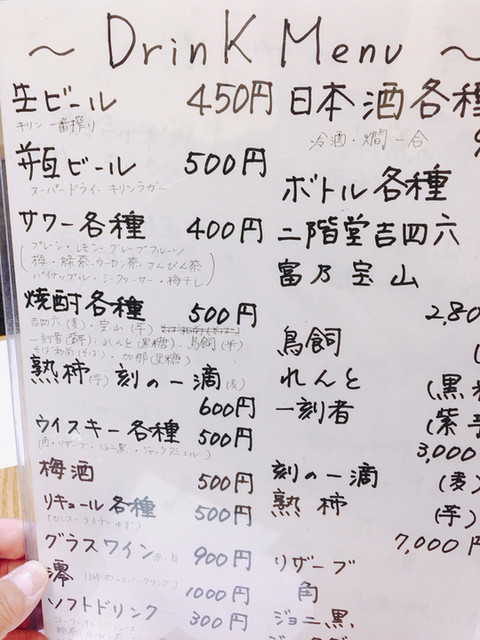 ～ DrinK Menu ～
生ビール 450円
キリン一番搾り
瓶ビール 500円
スーパードライ、キリンラガー
サワー各種 400円
プレーン・レモン・グレープフルーツ
梅・緑茶・ウーロン茶・さんぴん茶
パイナップル・シークヮーサー・梅干し
焼酎各種 500円
吉四六(麦)・宝山(芋)
一刻者(芋)・れんと(黒糖)、鳥飼(米)
そば和尚(そば)・加那(黒糖)
熟柿(芋) 刻の一滴(麦)
600円
ウイスキー各種 500円
(角・リザーブ・ジョニ黒・ジャックダニエル)
梅酒 500円
リキュール各種 500円
(カシス・ライチ・ゆず)
グラスワイン 赤・白 900円
澪 (日本酒のスパークリング) 1000円
ソフトドリンク 300円
コーラ・オレンジジュース
日本酒各種
冷酒・燗 一合
ボトル各種
二階堂吉四六
富乃宝山
2,80
鳥飼
れんと (黒
一刻者 (紫芋
3,000
刻の一滴 (麦)
熟柿 (芋)
7,000円
リザーブ
角
ジョニ黒